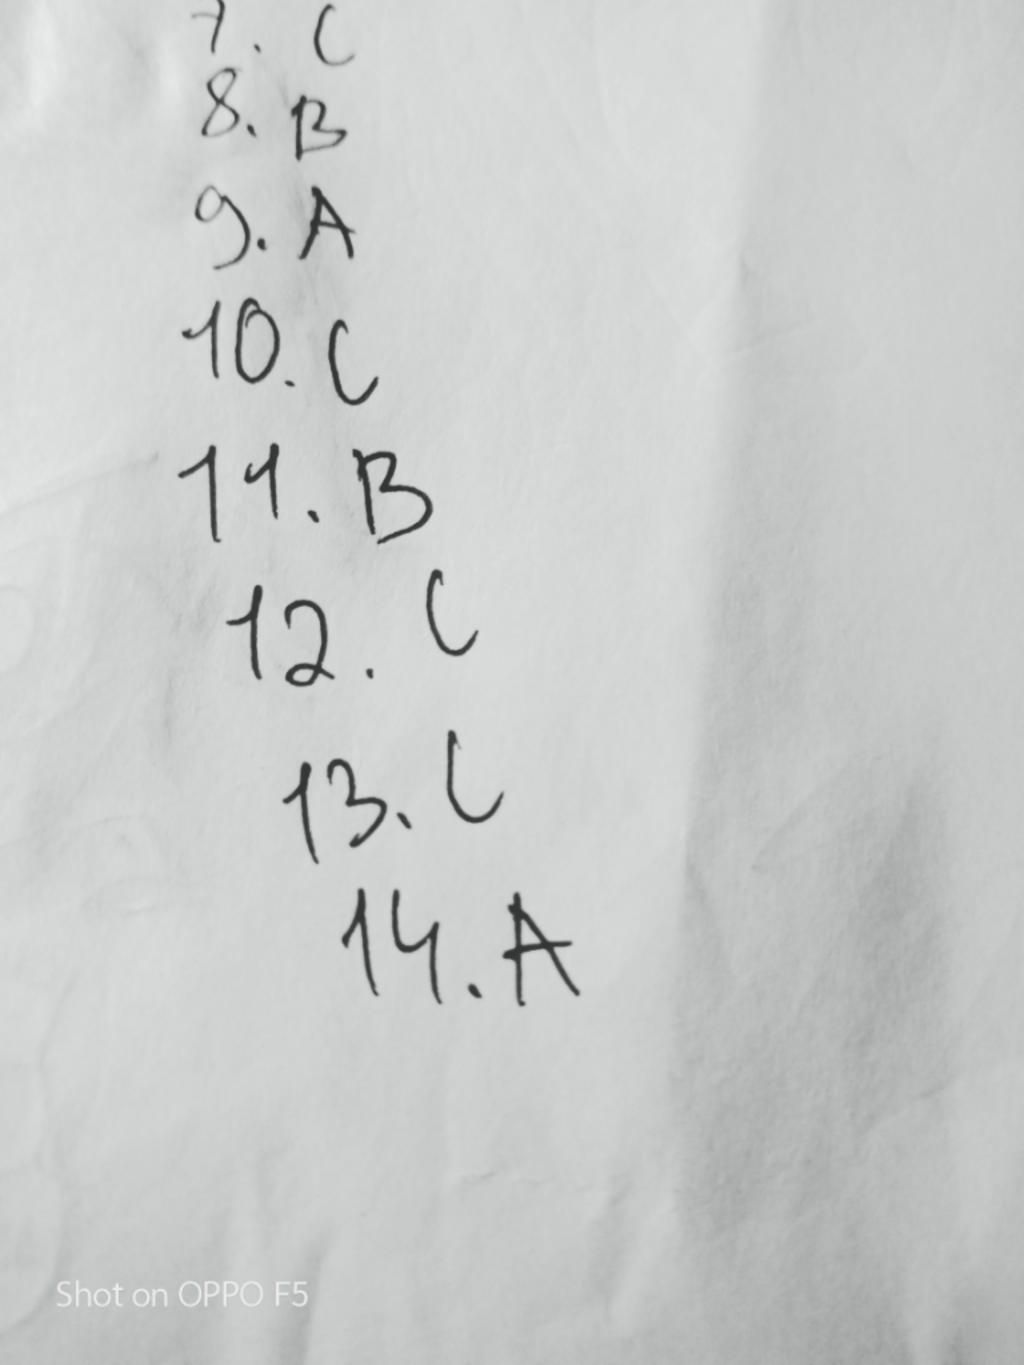 7. C
8. B
9. A
10. C
11. B
12. C
13. C
14. A
Shot on OPPO F5